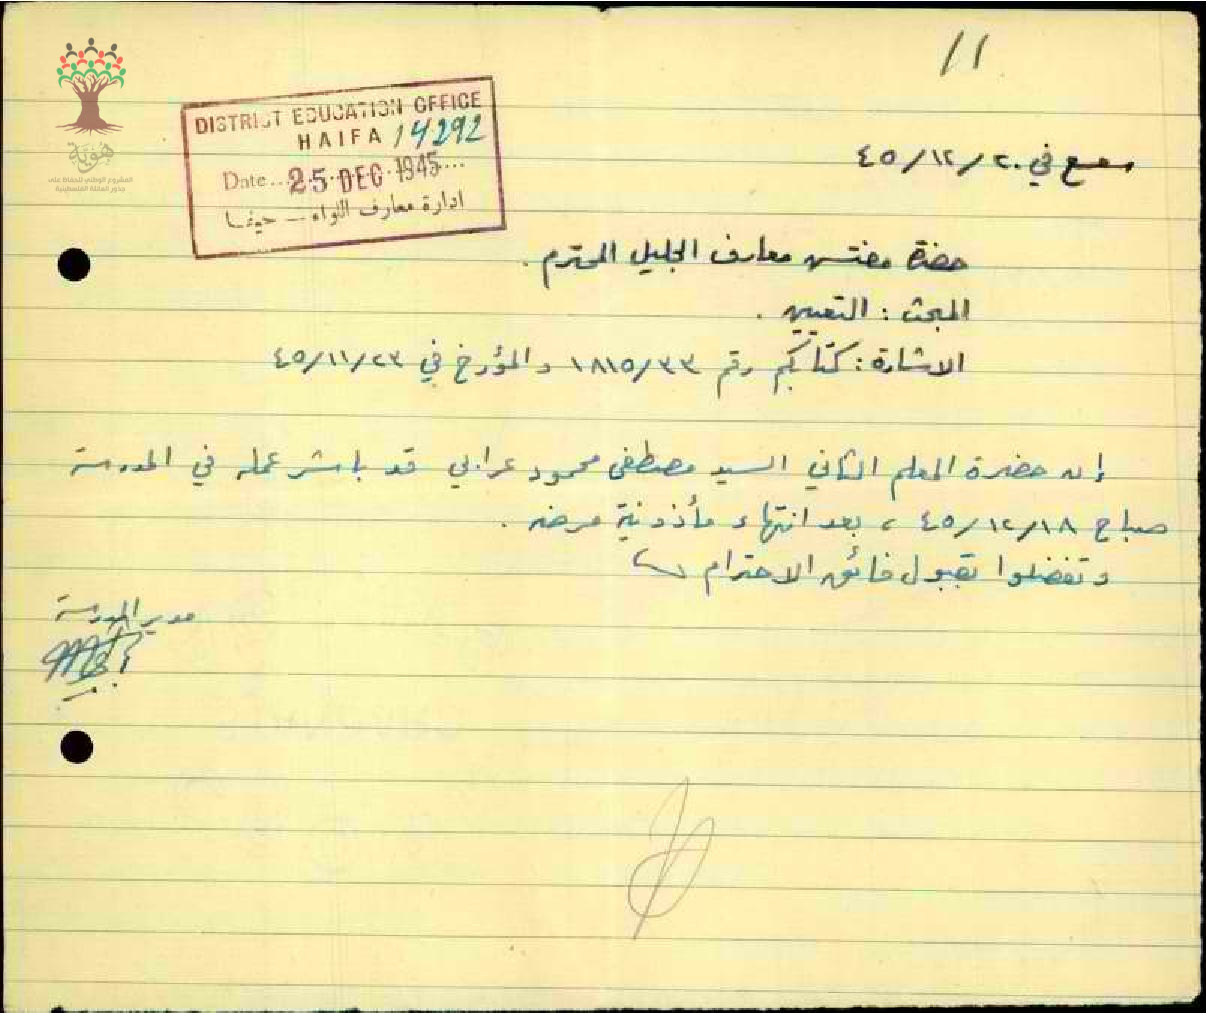 11
DISTRICT EDUCATION OFFICE
HAIFA 14292
Date... 25 DEC 1945....
ادارة معارف اللواء — حيفا
هوية
المشروع الوطني للحفاظ على
جذور العائلة الفلسطينية
في ٢٠/١٢/٤٥
حضرة مفتش معارف الجليل المحترم .
المبحث : التعيين .
الاشارة : كتابكم رقم ١٨١٥/٣٣ والمؤرخ في ٤٥/١١/٢٣
إن حضرة المعلم الثاني السيد مصطفى محمود عرابي قد باشر عمله في المدرسة
صباح ٤٥/١٢/١٨ ، بعد انتهاء مأذونية مرضه .
وتفضلوا بقبول فائق الاحترام
مدير المدرسة